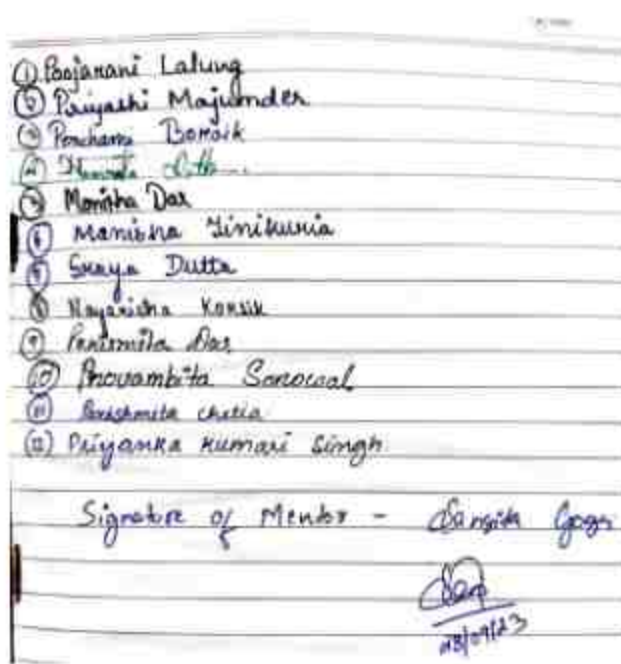 ① Poojarani Lalung
② Priyashi Majumder
③ Panchami Boraik
④
⑤ Monisha Das
⑥ Manisha Tinikuria
⑦ Sraya Dutta
⑧ Nayanisha Konsik
⑨ Parismita Das
⑩ Provambita Sonowal
⑪ Parishmita chetia
⑫ Priyanka Kumari Singh
Signature of Mentor - Sangita Gogoi